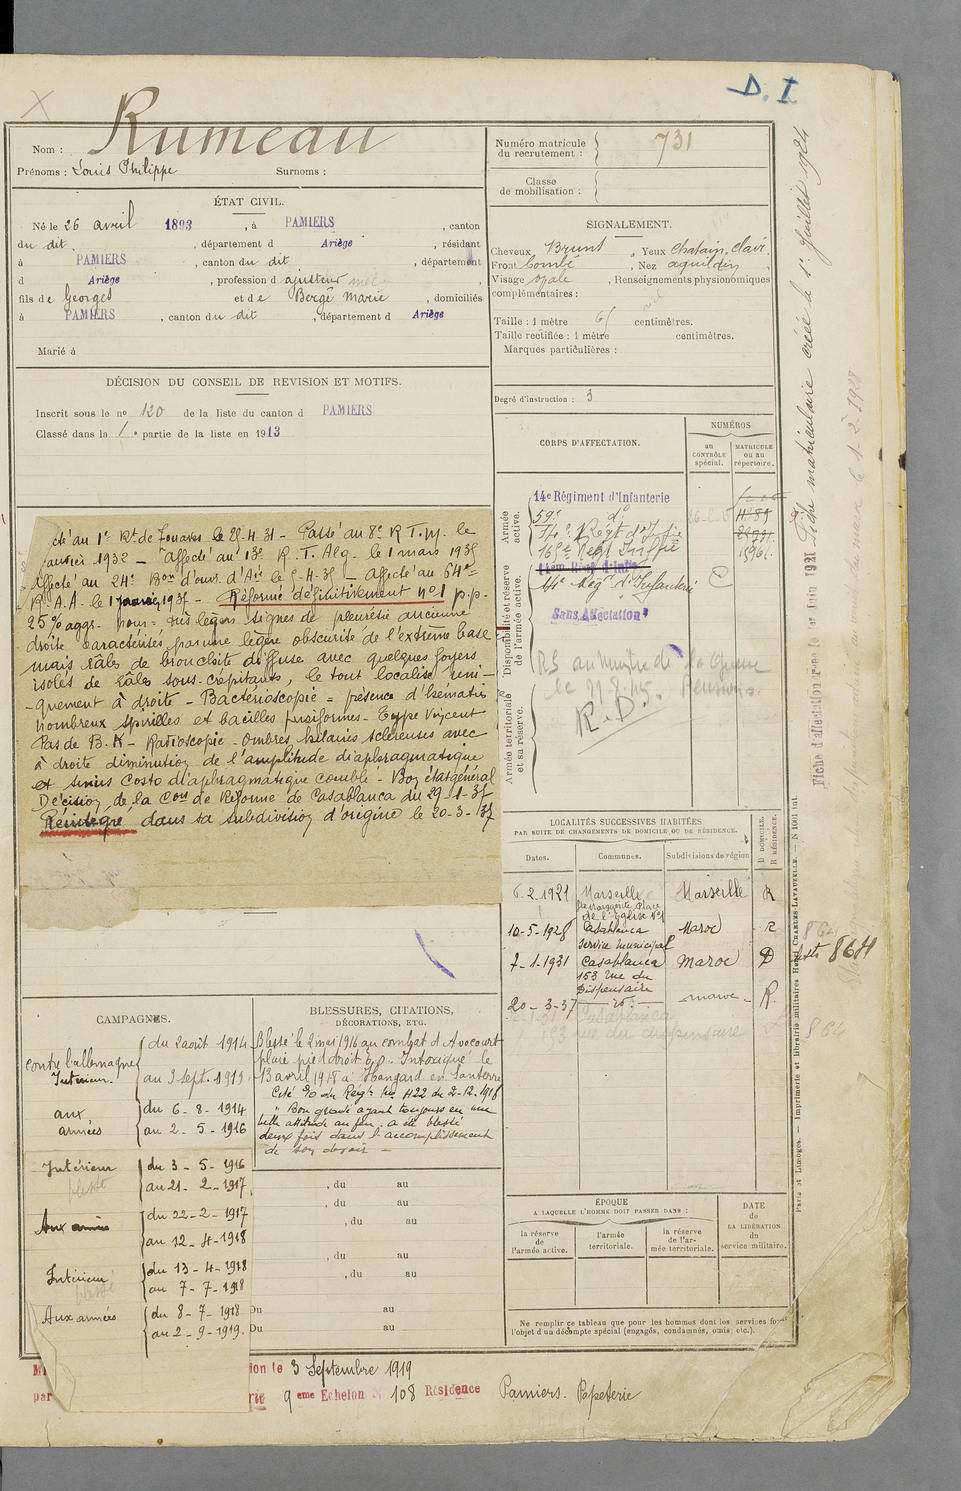 D. I
Rumeau
Nom :
Prénoms : Louis Philippe Surnoms :
Numéro matricule du recrutement : 731
Classe de mobilisation :
ÉTAT CIVIL.
Né le 26 avril 1893, à PAMIERS, canton
du dit, département d Ariège, résidant
à PAMIERS, canton du dit, département
d Ariège, profession d ajusteur
fils de Georges et de Bergé Marie, domiciliés
à PAMIERS, canton du dit, département d Ariège
Marié à
SIGNALEMENT.
Cheveux Bruns, Yeux chatain clair,
Front bombé, Nez aquilin,
Visage ovale, Renseignements physionomiques
complémentaires :
Taille : 1 mètre 61 centimètres.
Taille rectifiée : 1 mètre centimètres.
Marques particulières :
Degré d'instruction : 3
DÉCISION DU CONSEIL DE REVISION ET MOTIFS.
Inscrit sous le no 120 de la liste du canton d PAMIERS
Classé dans la 1e partie de la liste en 1913
CORPS D'AFFECTATION.
NUMÉROS
au CONTRÔLE spécial.
MATRICULE ou au répertoire.
Armée active.
14e Régiment d'Infanterie
59e do
Disponibilité et réserve de l'armée active.
14e Régt d'Infanterie
Sans Affectation
Armée territoriale et sa réserve.
le 29-8-45. Pensions.
R.D.
té au 1er Rt de Zouaves le 25-4-31 - Passé au 8e R.T.M. le
janvier 1932 - Affecté au 13e R.T.Alg. le 1 mars 1935
Affecté au 24e Bon d'ouv. d'Art le 5-4-35 - Affecté au 64e
R.A.A. le 1 janvier 1937 - Réformé définitivement no 1 p.p.
25% aggr. pour = très légers signes de pleurésie ancienne
droite caractérisés par une légère obscurité de l'extrême base
mais râles de bronchite diffuse avec quelques foyers
isolés de râles sous-crépitants, le tout localisé uni-
-quement à droite - Bactérioscopie = présence d'hématies
nombreux spirilles et bacilles fusiformes - Type Vincent
Pas de B.K - Radioscopie - Ombres hilaires scléreuses avec
à droite diminution de l'amplitude diaphragmatique
et sinus costo diaphragmatique comblé - Bon état général
Décision de la Con de Réforme de Casablanca du 29-1-37
Réintégré dans sa subdivision d'origine le 20-3-37
LOCALITÉS SUCCESSIVES HABITÉES
PAR SUITE DE CHANGEMENTS DE DOMICILE OU DE RÉSIDENCE.
D DOMICILE. R RÉSIDENCE.
Dates. Communes. Subdivisions de région
6-2-1921 Marseille Marseille R
Ste Marguerite Place de l'Eglise No1
10-5-1928 Casablanca Maroc R
Service municipal
7-1-1931 Casablanca Maroc D
153 rue du Dispensaire
20-3-37 - do - maroc - R.
CAMPAGNES.
contre l'allemagne
Intérieur. du 2 août 1914
au 3 sept. 1919
aux armées du 6-8-1914
au 2-5-1916
Intérieur du 3-5-1916
au 21-2-1917
Aux armées du 22-2-1917
au 12-4-1918
Intérieur du 13-4-1918
au 7-7-1918
Aux armées du 8-7-1918
au 2-9-1919.
BLESSURES, CITATIONS,
DÉCORATIONS, ETC.
Blessé le 2 mai 1916 au combat d'Avocourt
plaie pied droit e.o. Intoxiqué le
13 avril 1918 à Hangard en Santerre
Cité à l'O du Régt No 422 du 2-12-1918
" Bon gradé ayant toujours eu une
belle attitude au feu, a été blessé
deux fois dans l'accomplissement
de son devoir -
, du au
, du au
, du au
, du au
, du au
Du au
Du au
ÉPOQUE
A LAQUELLE L'HOMME DOIT PASSER DANS :
la réserve de l'armée active.
l'armée territoriale.
la réserve de l'armée territoriale.
DATE de LA LIBÉRATION du service militaire.
Ne remplir ce tableau que pour les hommes dont les services font
l'objet d'un décompte spécial (engagés, condamnés, omis, etc.).
ion le 3 Septembre 1919
9eme Echelon No 108 Résidence Pamiers. Papeterie
Fiche matriculaire créée le 1er Juillet 1924
864
Paris et Limoges. — Imprimerie et librairie militaires Henri CHARLES-LAVAUZELLE. — N 1001 bis